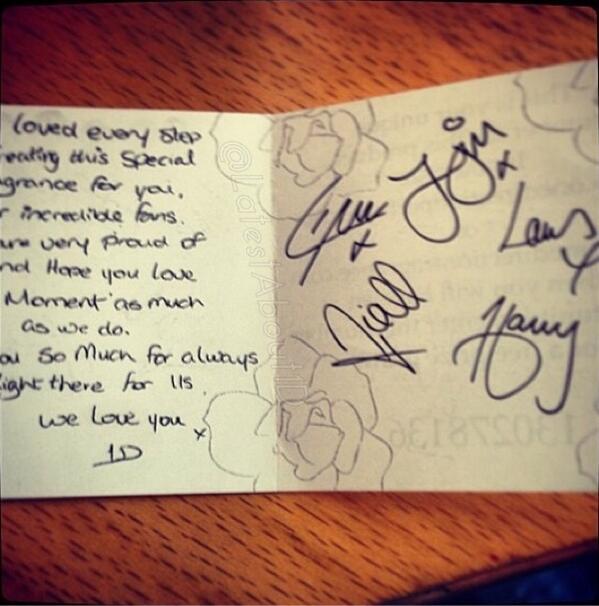 loved every step
reating this special
grance for you,
r incredible fans.
are very proud of
nd Hope you love
Moment as much
as we do.
ou so Much for always
right there for us.
we love you x
1D
Liam x
Zayn x
Louis x
Niall
Harry
130278136
@LatestAbout1D